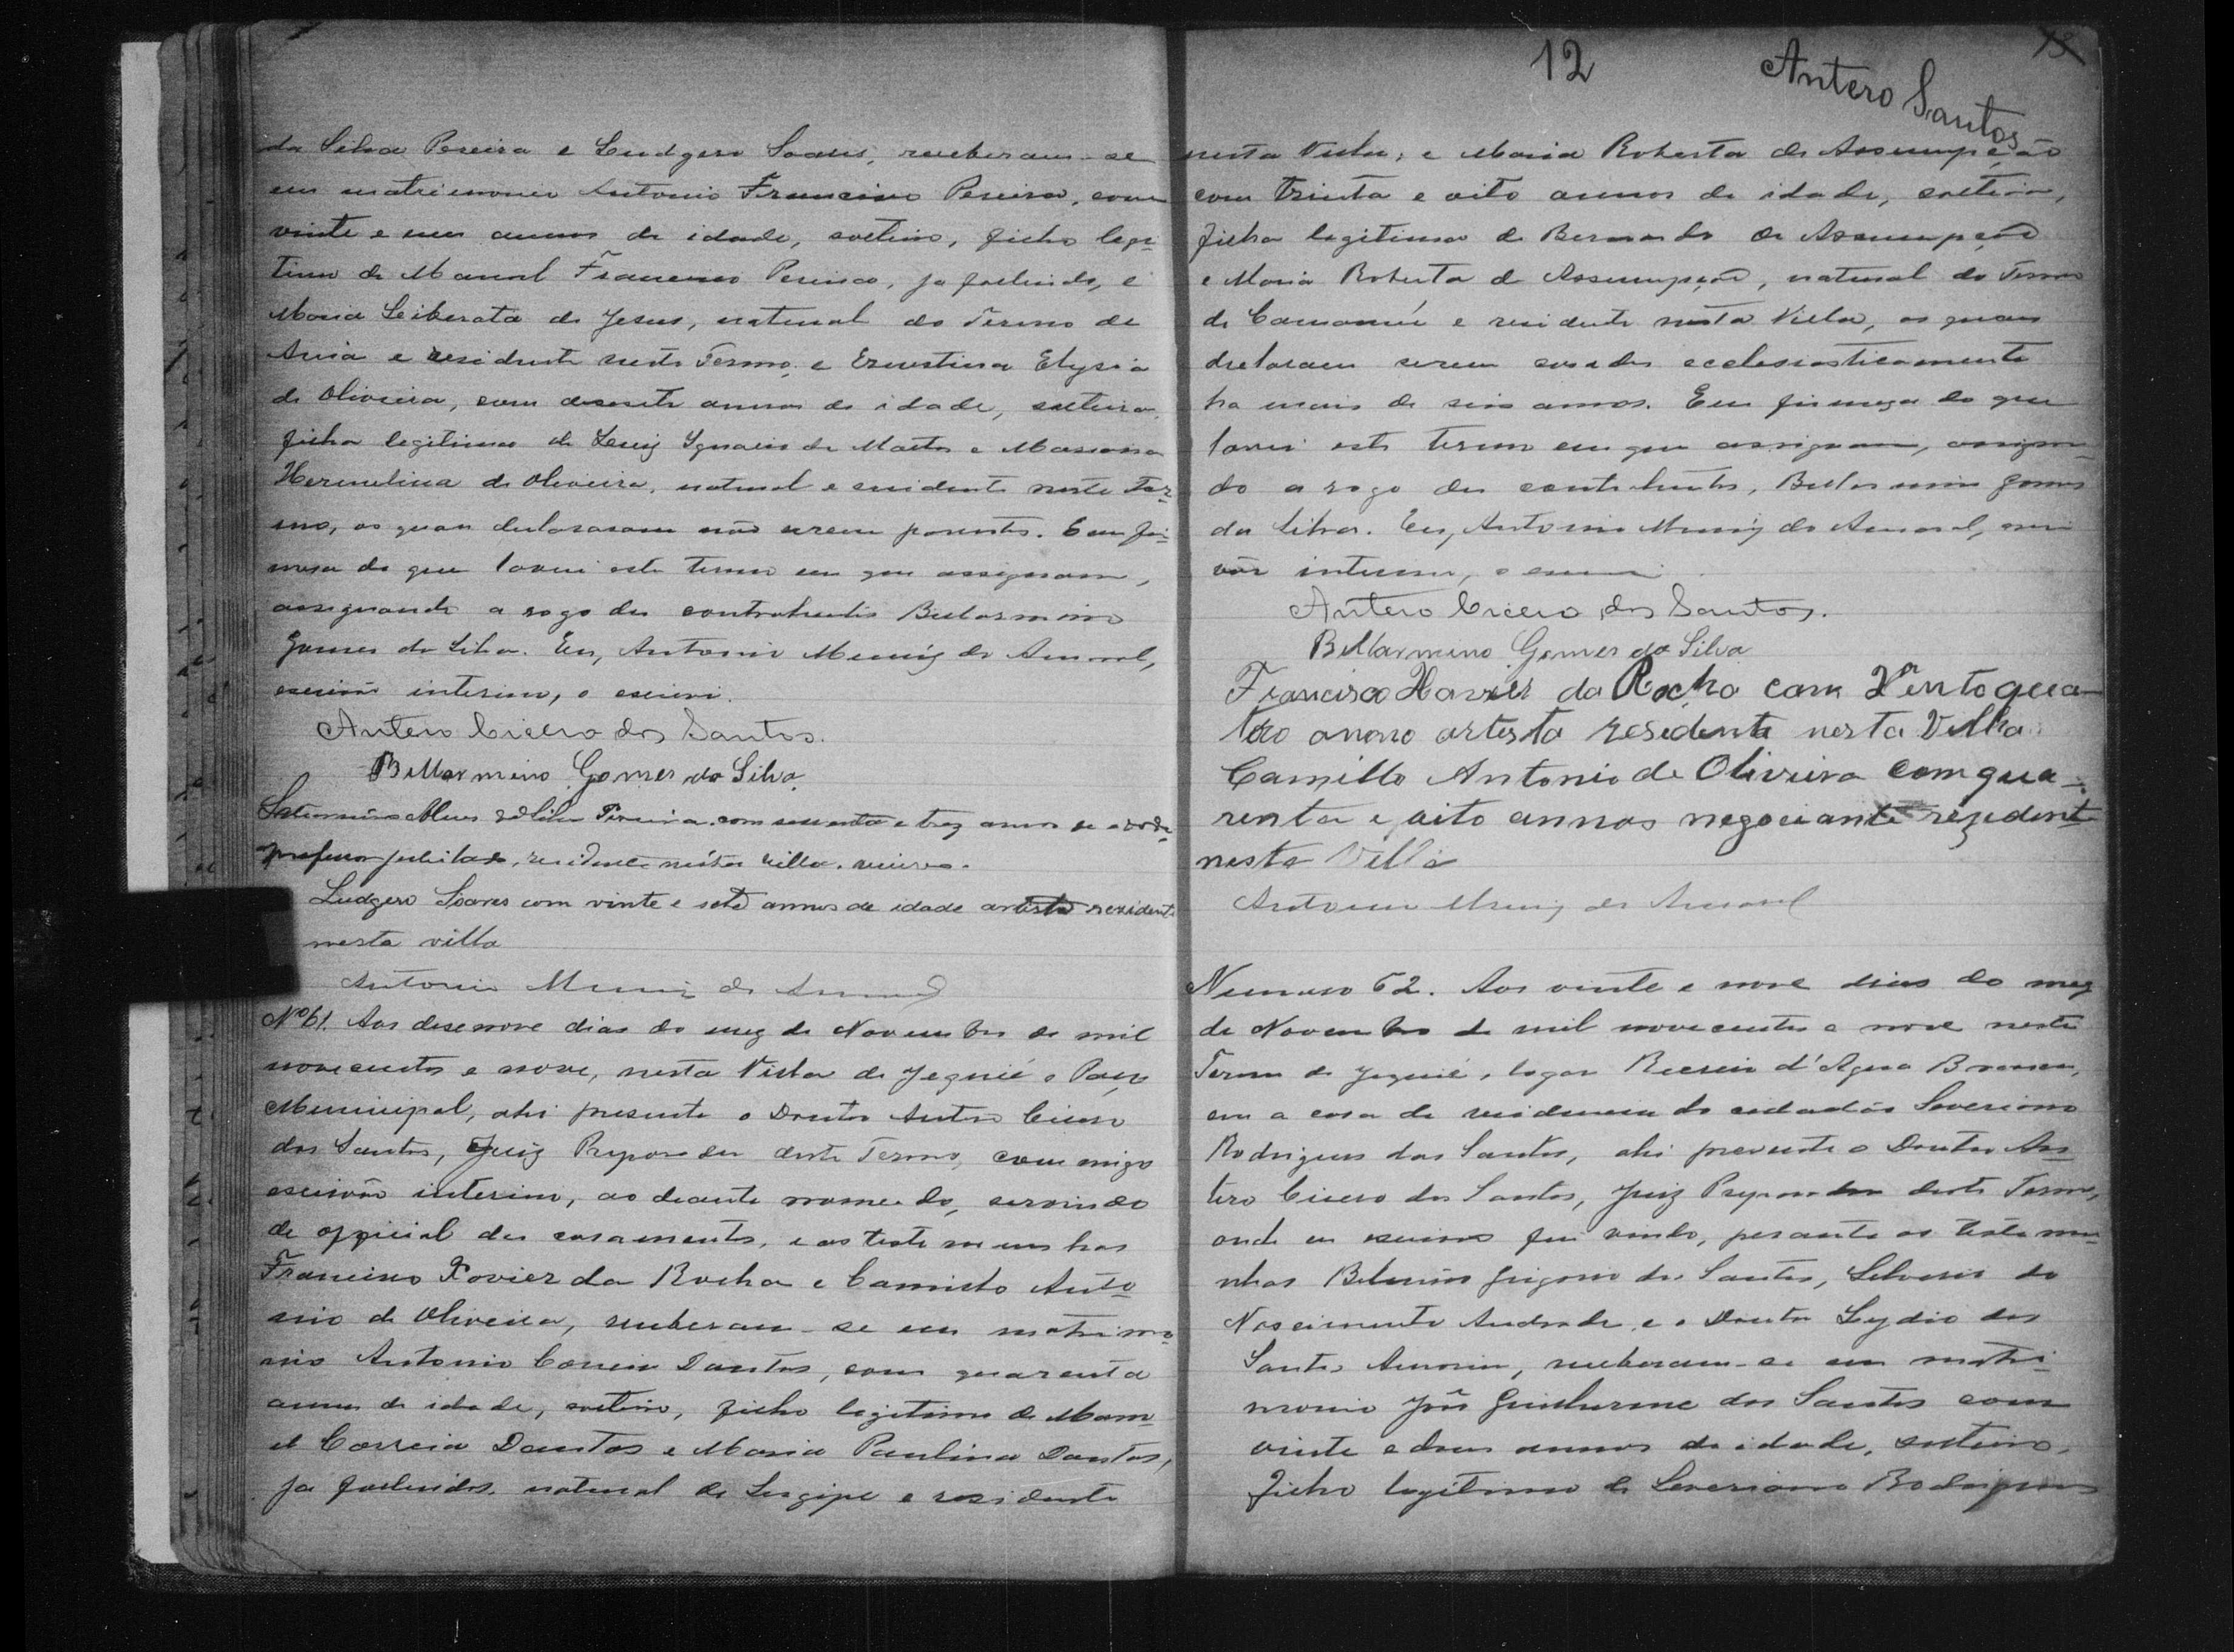 da Silva Pereira e Ludgero Soares, receberam-se
em matrimonio Antonio Francisco Pereira, com
vinte e um annos de idade, solteiro, filho legi-
timo de Manoel Francisco Pereira, ja fallecido, e
Maria Leiberata de Jesus, natural do Termo de
Areia e residente neste Termo, e Ernestina Elysia
de Oliveira, com desesete annos de idade, solteira,
filha legitima de Luiz Ignacio de Mattos e
Hermelina de Oliveira, natural e residente neste Ter-
mo, os quaes declararam não serem parentes. Em fir-
mesa do que lavrei este termo em que assignam,
assignando a rogo dos contrahentes Bellarmino
Gomes da Silva. Eu, Antonio Muniz do Amaral,
escrivão interino, o escrevi.
Antero Cicero dos Santos.
Bellarmino Gomes da Silva.
Alves da Silva Pereira, com sessenta e trez annos de idade
professor jubilado, residente nesta villa, viuvo.
Ludgero Soares com vinte e sete annos de idade artista rezidente
nesta villa
Antonio Muniz do Amaral
Nº 61. Aos desenove dias do mez de Novembro de mil
novecentos e nove, nesta Villa de Jequié e Paço
Municipal, ahi presente o Doutor Antero Cicero
dos Santos, Juiz Preparador deste Termo, commigo
escrivão interino, ao deante nomeado, servindo
de official dos casamentos, e as testemunhas
Francisco Xavier da Rocha e Camillo Anto-
nio de Oliveira, receberam-se em matrimo-
nio Antonio Correia Dantas, com quarenta
annos de idade, solteiro, filho legitimo de Mano-
el Correia Dantas e Maria Paulina Dantas,
ja fallecidos, natural de Sergipe e residente
12
Antero Santos
nesta Villa; e Maria Roberta de Assumpção
com trinta e oito annos de idade, solteira,
filha legitima de Bernardo de Assumpção
e Maria Roberta de Assumpção, natural do Termo
de Camamú e residente nesta Villa, os quaes
declaram serem casados ecclesiasticamente
ha mais de seis annos. Em firmeza do que
lavrei este termo em que assignam, assignan-
do a rogo dos contrahentes, Bellarmino Gomes
da Silva. Eu, Antonio Muniz do Amaral, escri-
vão interino, o escrevi.
Antero Cicero dos Santos.
Bellarmino Gomes da Silva
Francisco Xavier da Rocha com Vinto qua-
tro anno artista residente nesta Villa
Camillo Antonio de Oliveira com qua-
renta e oito annos negociante rezidente
nesta Villa
Antonio Muniz do Amaral
Numero 62. Aos vinte e nove dias do mez
de Novembro de mil novecentos e nove neste
Termo de Jequié, logar d'Agua Branca,
em a casa de residencia do cidadão Severiano
Rodrigues dos Santos, ahi presente o Doutor An-
tero Cicero dos Santos, Juiz Preparador deste Termo,
onde eu escrivão fui vindo, perante as testemu-
nhas dos Santos, do
Nascimento Andrade, e o Doutor Lydio dos
Santos Amorim, receberam-se em matri-
monio José Guilherme dos Santos com
vinte e dous annos de idade, solteiro,
filho legitimo de Severiano Rodrigues